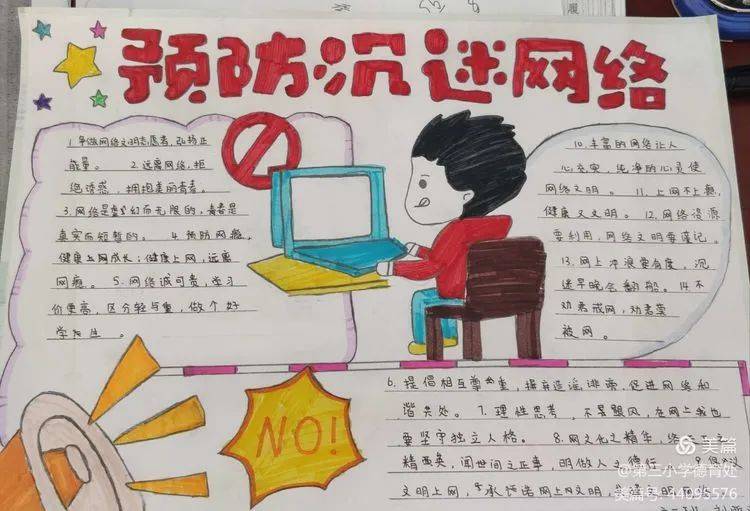 预防沉迷网络
1.争做网络文明志愿者,弘扬正
能量。 2.远离网络,拒
绝诱惑,拥抱美丽青春。
3.网络是梦幻而无限的,青春是
真实而短暂的。 4.预防网瘾,
健康上网成长;健康上网,远离
网瘾。 5.网络诚可贵,学习
价更高,区分轻与重,做个好
学生。
10.丰富的网络让人
心充实,纯净的心灵使
网络文明。 11.上网不上瘾,
健康又文明。 12.网络资源
要利用,网络文明要谨记。
13.网上冲浪要有度,沉
迷早晚会翻船。14.不
劝君戒网,劝君莫
被网。
NO!
6.提倡相互尊重,摒弃造谣诽谤,促进网络和
谐共处。 7.理性思考,不是跟风,在网上我也
要坚守独立人格。 8.网文化之精华,
精西英,闻世间之正事,明做人之德行
文明上网,承诺网上文明,
美篇
@第二小学德育处
美篇号:44095576